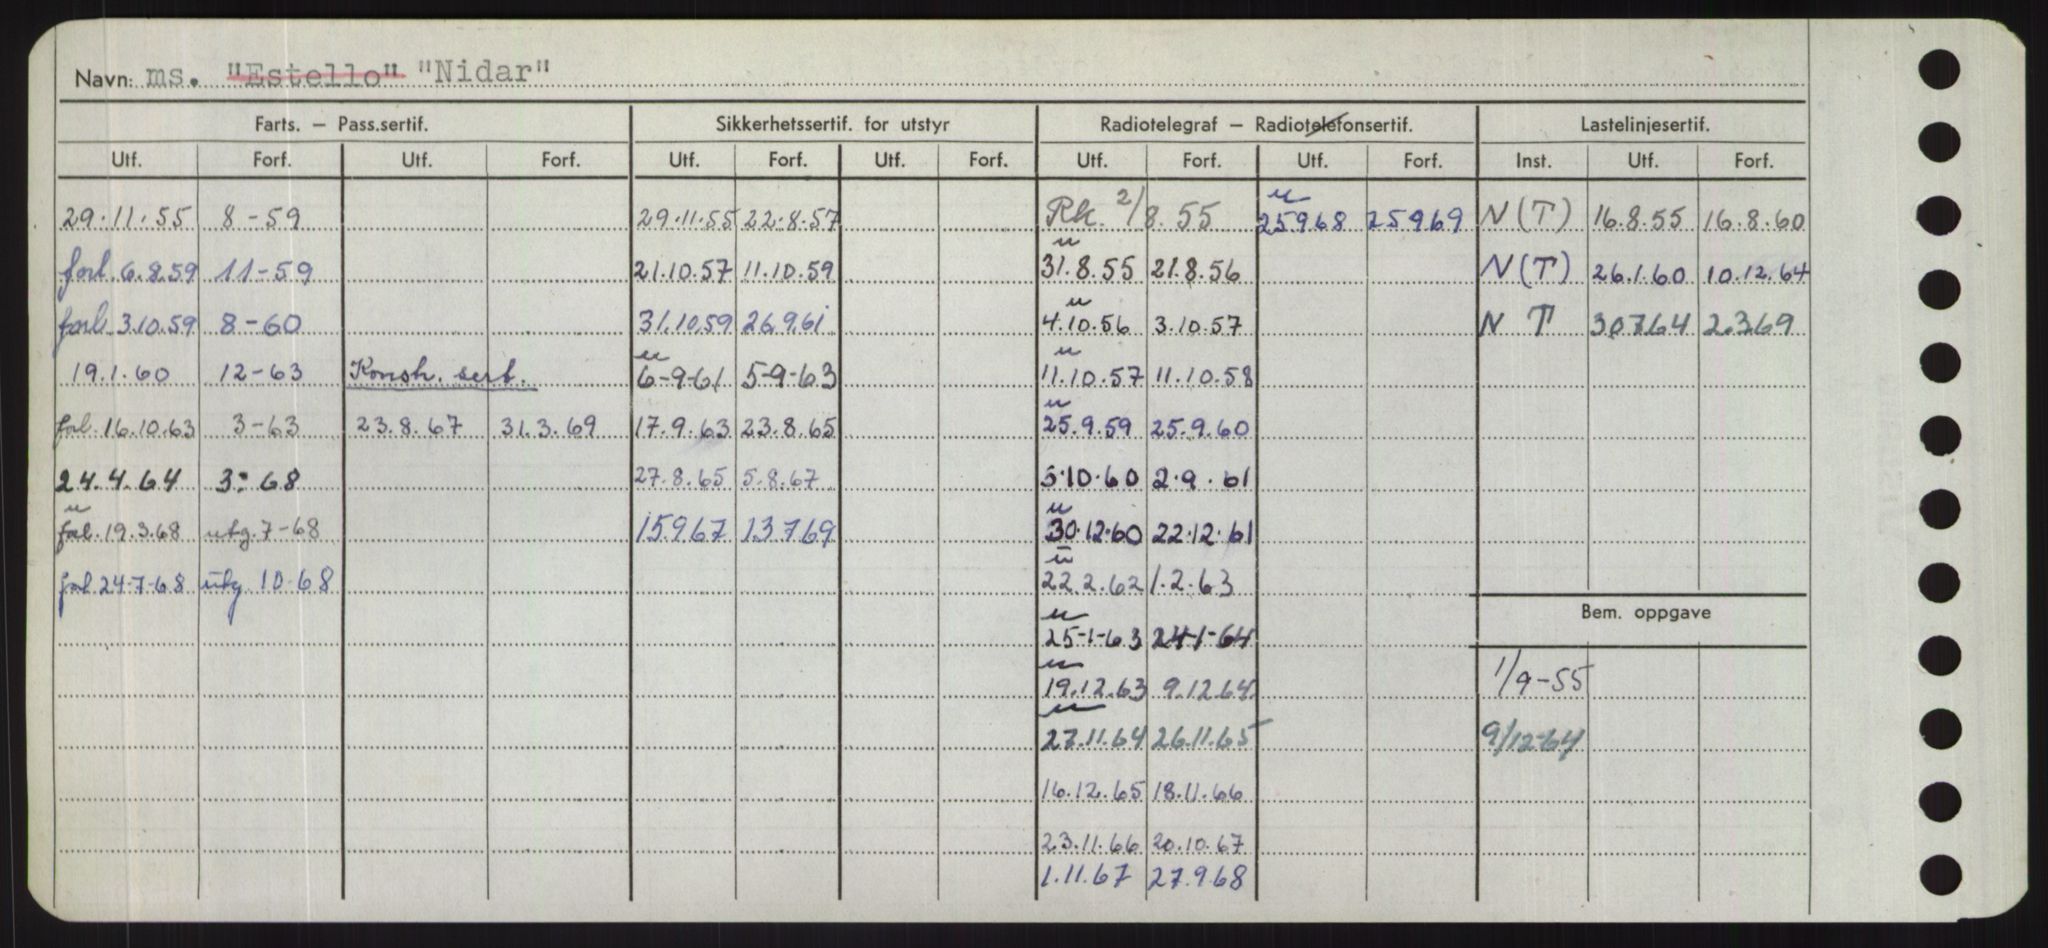 Navn: ms. "Estello" "Nidar"
Farts. – Pass.sertif. Sikkerhetssertif. for utstyr Radiotelegraf – Radiotelefonsertif. Lastelinjesertif.
Utf. Forf. Utf. Forf. Utf. Forf. Utf. Forf. Utf. Forf. Utf. Forf. Inst. Utf. Forf.
29.11.55 8-59 29.11.55 22.8.57 Rk. 2/8.55 u 25968 25969 N(T) 16.8.55 16.8.60
forl. 6.8.59 11-59 21.10.57 11.10.59 u 31.8.55 21.8.56 N(T) 26.1.60 10.12.64
forl. 3.10.59 8-60 31.10.59 26.9.61 u 4.10.56 3.10.57 N T 30764 2.3.69
19.1.60 12-63 Konstr. sert. u 6-9-61 5-9-63 u 11.10.57 11.10.58
forl. 16.10.63 3-63 23.8.67 31.3.69 17.9.63 23.8.65 u 25.9.59 25.9.60
24.4.64 3-68 27.8.65 5.8.67 5.10.60 2.9.61
u forl. 19.3.68 utg. 7-68 15967 13769 u 30.12.60 22.12.61
forl 24-7-68 utg. 10-68 u 22.2.62 1.2.63
Bem. oppgave
u 25-1-63 24-1-64
u 19.12.63 9.12.64 1/9-55
u 27.11.64 26.11.65 9/12-64
16.12.65 18.11.66
23.11.66 20.10.67
1.11.67 27.9.68